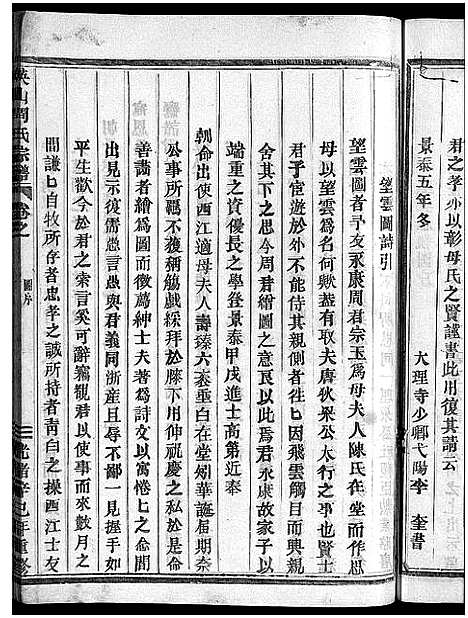 君之孝亦以彰母氏之賢謹書此用復周君請云
景泰五年冬
大理寺少卿弋陽李 奎書
望雲圖詩引
望雲圖者予友永康周君宗玉爲母夫人陳氏在堂而作思
母以望雲爲名何歟蓋有取夫唐狄梁公太行之事也賢士
君子宦遊於彼使其親側者匕因飛雲觸目而興親
舍其下之思今周君繪圖之意良以此焉君永康故家子以
端重之資優長之學登景泰甲戌進士高第近奉
朝命出使西江適母夫人壽臻六袠垂白在堂矧華誕届期奈
公事所羈不獲稱觴戲綵拜於膝下用伸祝慶之私於是命
善畵者繪爲圖而徵薦紳士夫著爲詩文以寓惓匕之念間
出見示復需愚言愚與君義同浙產且辱不鄙一見握手如
平生歡今於君之索言奚可辭竊觀君以使事而來數月之
間謙匕自牧所存者忠孝之誠所持者靑白之操西江士友
英山周氏宗譜 卷之
圖序
光緒辛巳年重修